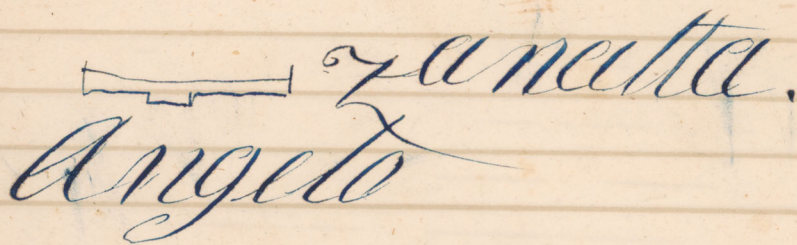 Zanatta.
Angelo